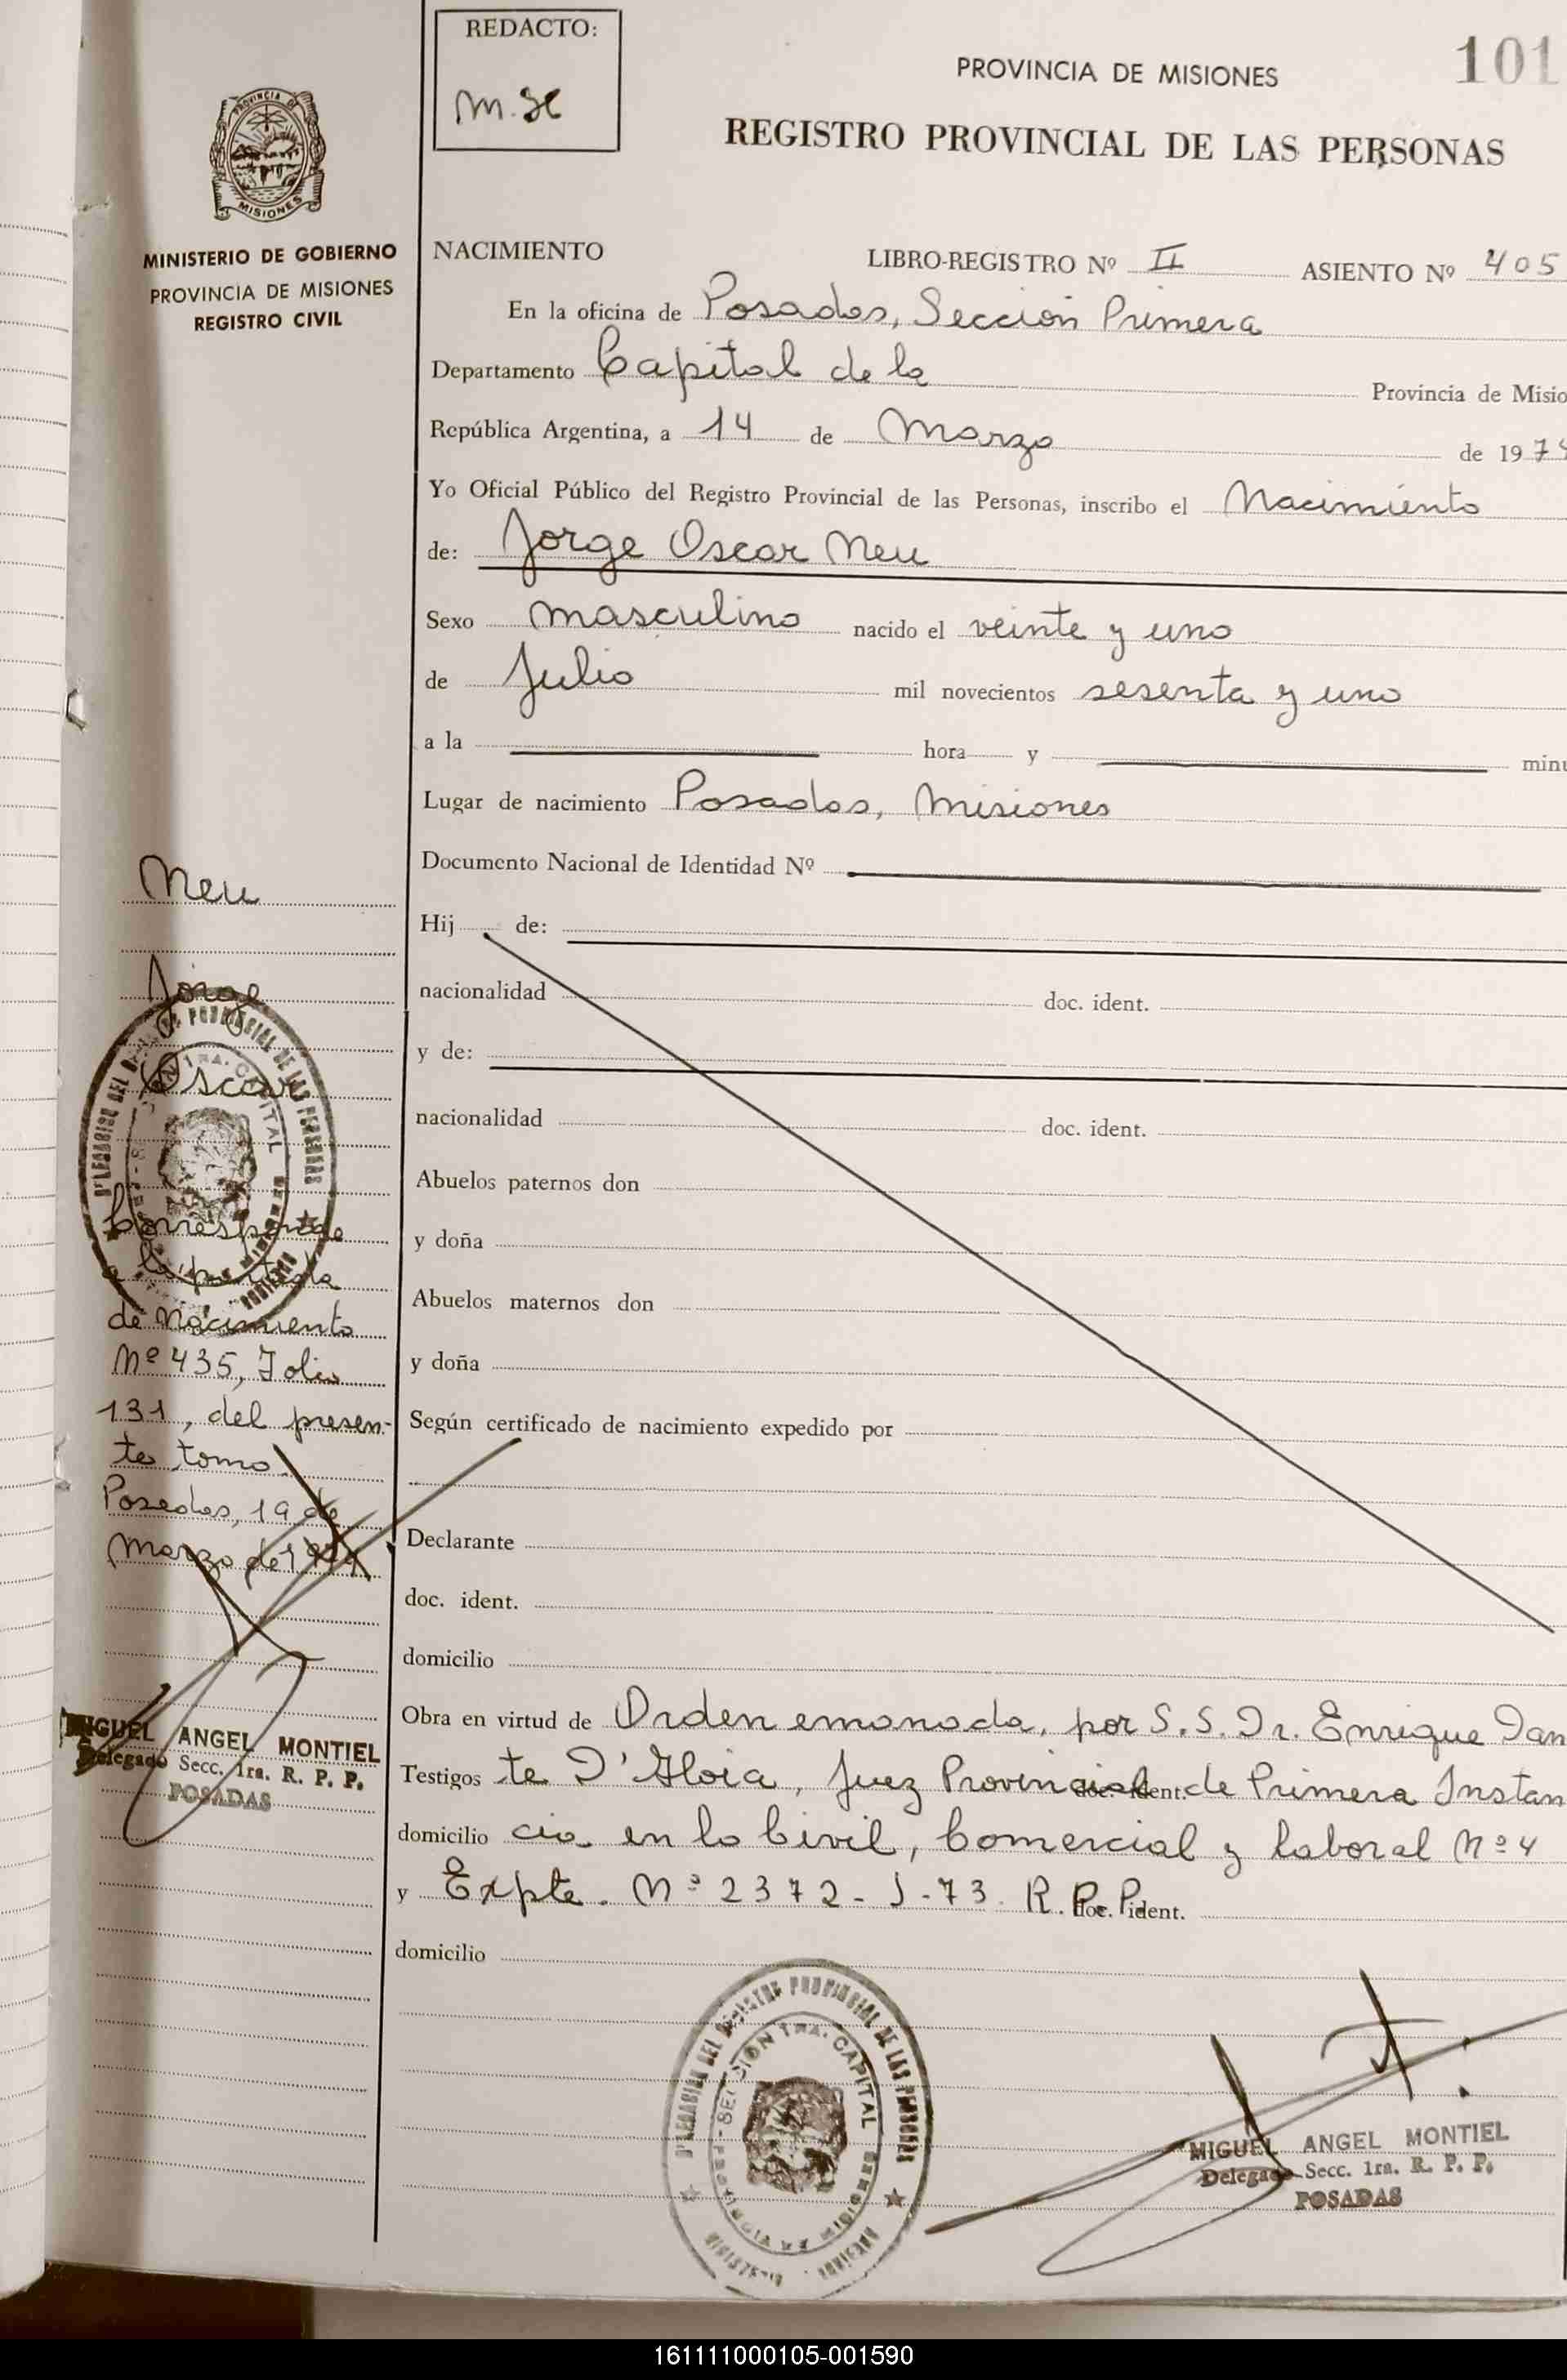 REDACTO:
M.H
PROVINCIA DE MISIONES
101
REGISTRO PROVINCIAL DE LAS PERSONAS
PROVINCIA DE
MISIONES
MINISTERIO DE GOBIERNO
PROVINCIA DE MISIONES
REGISTRO CIVIL
NACIMIENTO LIBRO-REGISTRO Nº II ASIENTO Nº 405
En la oficina de Posadas, Sección Primera
Departamento Capital de la Provincia de Misio
República Argentina, a 14 de Marzo de 197
Yo Oficial Público del Registro Provincial de las Personas, inscribo el Nacimiento
de: Jorge Oscar Neu
Sexo masculino nacido el veinte y uno
de Julio mil novecientos sesenta y uno
a la hora y minu
Lugar de nacimiento Posadas, Misiones
Documento Nacional de Identidad Nº
Hij de:
nacionalidad doc. ident.
y de:
nacionalidad doc. ident.
Abuelos paternos don
y doña
Abuelos maternos don
y doña
Según certificado de nacimiento expedido por
Declarante
doc. ident.
domicilio
Obra en virtud de Orden emanada, por S.S. Dr. Enrique Dan
Testigos te D'Aloia, Juez Provincial doc. ident. de Primera Instan
domicilio cia en lo Civil, Comercial y Laboral Nº 4
y Expte. Nº 2372-J-73. R. P. P. doc. ident.
domicilio
Neu
Jorge
Oscar
Corresponde
a la partida
de Nacimiento
Nº 435, Folio
131, del presen-
te tomo.
Posadas, 19 de
Marzo de
MIGUEL ANGEL MONTIEL
Delegado Secc. 1ra. R. P. P.
POSADAS
REGISTRO PROVINCIAL DE LAS PERSONAS
SECCION 1RA. CAPITAL
PROVINCIA DE MISIONES
MIGUEL ANGEL MONTIEL
Delegado Secc. 1ra. R. P. P.
POSADAS
161111000105-001590